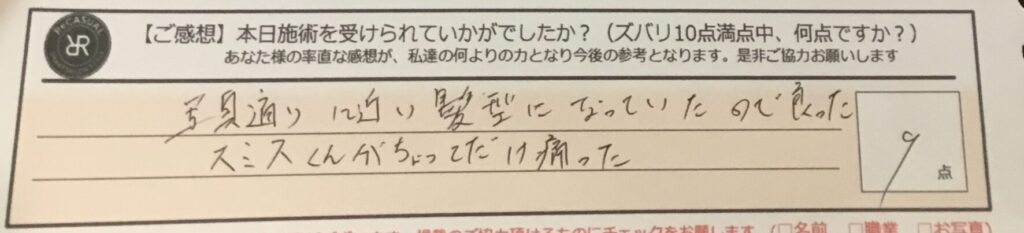 【ご感想】本日施術を受けられていかがでしたか？（ズバリ10点満点中、何点ですか？）
あなた様の率直な感想が、私達の何よりの力となり今後の参考となります。是非ご協力お願いします
写真通りに近い髪型になっていたので良った
スミスくんがちょってだけ痛った
9
点
にチェックをお願いします（□名前 □職業 □お写真）